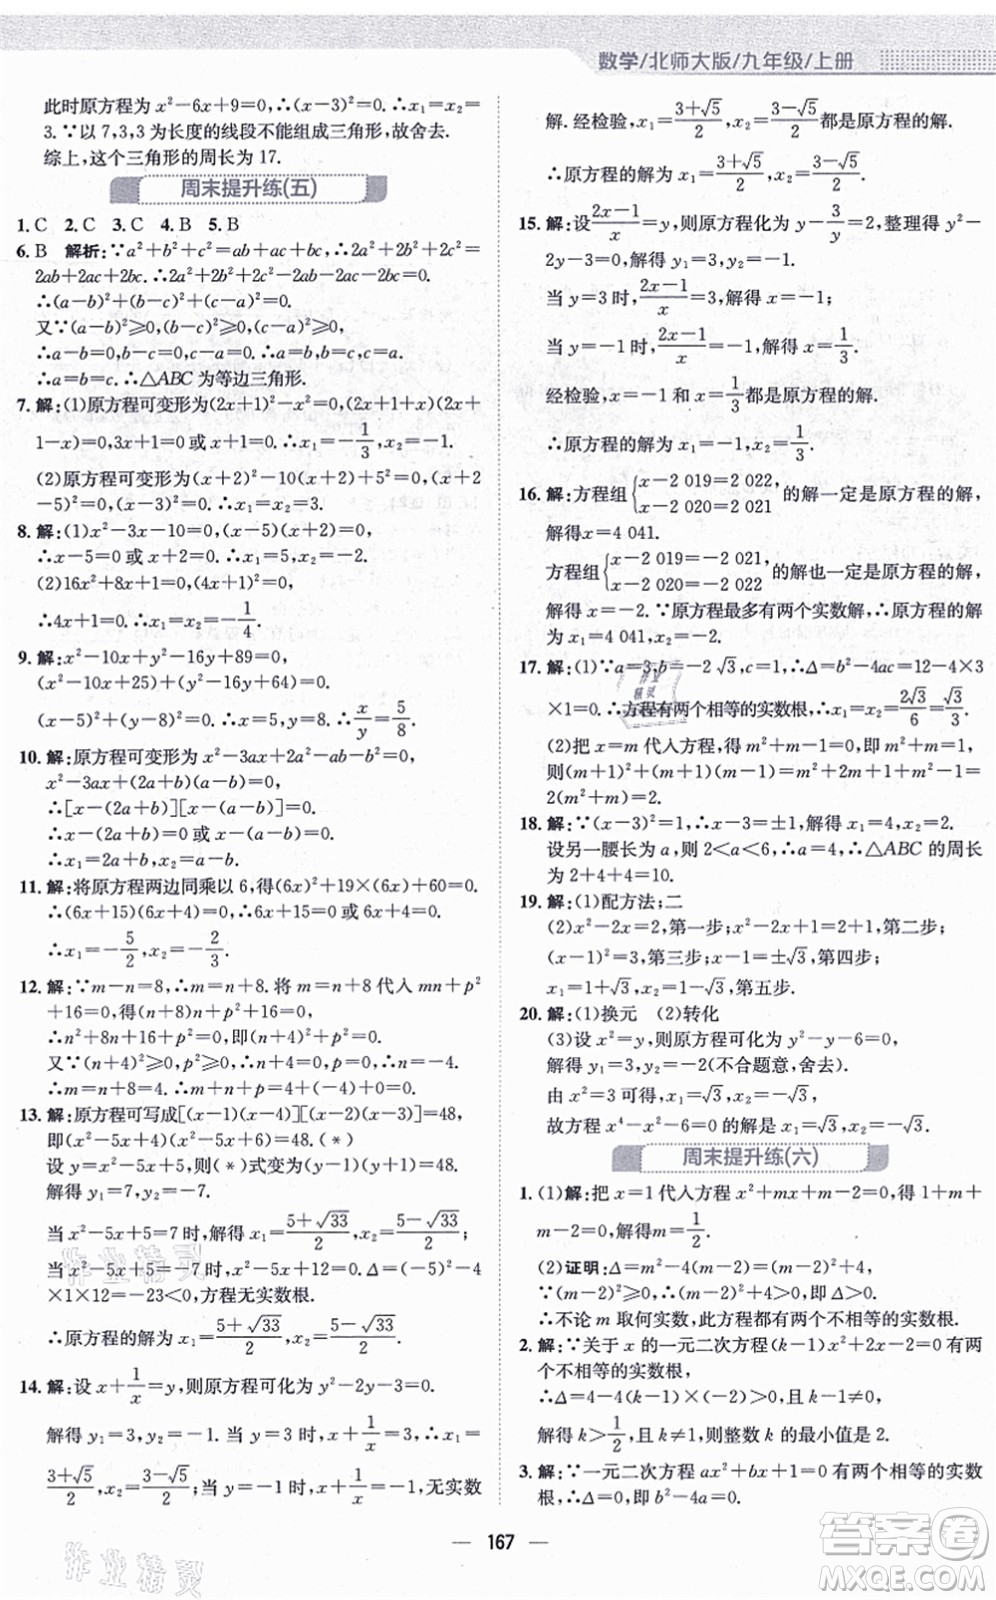 数学/北师大版/九年级/上册
此时原方程为 x²－6x＋9＝0,∴(x－3)²＝0,∴x₁＝x₂＝
3.∵以 7,3,3 为长度的线段不能组成三角形,故舍去.
综上,这个三角形的周长为 17.
周末提升练(五)
1. C 2. C 3. C 4. B 5. B
6. B 解析:∵a²＋b²＋c²＝ab＋ac＋bc,∴2a²＋2b²＋2c²＝
2ab＋2ac＋2bc,∴2a²＋2b²＋2c²－2ab－2ac－2bc＝0.
∴(a－b)²＋(b－c)²＋(a－c)²＝0.
又∵(a－b)²≥0,(b－c)²≥0,(a－c)²≥0,
∴a－b＝0,b－c＝0,a－c＝0.
∴a＝b＝c.∴△ABC 为等边三角形.
7. 解:(1)原方程可变形为(2x＋1)²－x²＝0,(2x＋1＋x)(2x＋
1－x)＝0,3x＋1＝0 或 x＋1＝0.∴x₁＝－1/3,x₂＝－1.
(2)原方程可变形为(x＋2)²－10(x＋2)＋5²＝0,(x＋2
－5)²＝0,(x－3)²＝0,∴x₁＝x₂＝3.
8. 解:(1)x²－3x－10＝0,(x－5)(x＋2)＝0,
∴x－5＝0 或 x＋2＝0.∴x₁＝5,x₂＝－2.
(2)16x²＋8x＋1＝0,(4x＋1)²＝0,
∴4x＋1＝0.∴x₁＝x₂＝－1/4.
9. 解:x²－10x＋y²－16y＋89＝0,
(x²－10x＋25)＋(y²－16y＋64)＝0,
(x－5)²＋(y－8)²＝0,∴x＝5,y＝8.∴x/y＝5/8.
10. 解:原方程可变形为 x²－3ax＋2a²－ab－b²＝0,
x²－3ax＋(2a＋b)(a－b)＝0.
∴[x－(2a＋b)][x－(a－b)]＝0.
∴x－(2a＋b)＝0 或 x－(a－b)＝0.
∴x₁＝2a＋b,x₂＝a－b.
11. 解:将原方程两边同乘以 6,得(6x)²＋19×(6x)＋60＝0.
∴(6x＋15)(6x＋4)＝0.∴6x＋15＝0 或 6x＋4＝0.
∴x₁＝－5/2,x₂＝－2/3.
12. 解:∵m－n＝8,∴m＝n＋8. 将 m＝n＋8 代入 mn＋p²
＋16＝0,得 n(n＋8)＋p²＋16＝0.
∴n²＋8n＋16＋p²＝0,即(n＋4)²＋p²＝0.
又∵(n＋4)²≥0,p²≥0,∴n＋4＝0,p＝0.∴n＝－4.
∴m＝n＋8＝4.∴m＋n＋p＝4＋(－4)＋0＝0.
13. 解:原方程可写成[(x－1)(x－4)][(x－2)(x－3)]＝48,
即(x²－5x＋4)(x²－5x＋6)＝48.(*)
设 y＝x²－5x＋5,则(*)式变为(y－1)(y＋1)＝48.
解得 y₁＝7,y₂＝－7.
当 x²－5x＋5＝7 时,解得 x₁＝5＋√33/2,x₂＝5－√33/2;
当 x²－5x＋5＝－7 时,x²－5x＋12＝0.Δ＝(－5)²－4
×1×12＝－23＜0,方程无实数根.
∴原方程的解为 x₁＝5＋√33/2,x₂＝5－√33/2.
14. 解:设 x＋1/x＝y,则原方程可化为 y²－2y－3＝0.
解得 y₁＝3,y₂＝－1. 当 y＝3 时,x＋1/x＝3,∴x₁＝
3＋√5/2,x₂＝3－√5/2; 当 y＝－1 时,x＋1/x＝－1,无实数
解. 经检验,x₁＝3＋√5/2,x₂＝3－√5/2都是原方程的解.
∴原方程的解为 x₁＝3＋√5/2,x₂＝3－√5/2.
15. 解:设2x－1/x＝y,则原方程化为 y－3/y＝2,整理得 y²－
2y－3＝0.解得 y₁＝3,y₂＝－1.
当 y＝3 时,2x－1/x＝3,解得 x＝－1;
当 y＝－1 时,2x－1/x＝－1,解得 x＝1/3.
经检验,x＝－1 和 x＝1/3都是原方程的解.
∴原方程的解为 x₁＝－1,x₂＝1/3.
16. 解:方程组{x－2 019＝2 022, x－2 020＝2 021的解一定是原方程的解,
解得x＝4 041.
方程组{x－2 019＝－2 021, x－2 020＝－2 022的解也一定是原方程的解,
解得 x＝－2.∵原方程最多有两个实数解,∴原方程的解
为 x₁＝4 041,x₂＝－2.
17. 解:(1)∵a＝3,b＝－2√3,c＝1,∴Δ＝b²－4ac＝12－4×3
×1＝0.∴方程有两个相等的实数根,∴x₁＝x₂＝2√3/6＝√3/3.
(2)把 x＝m 代入方程,得 m²＋m－1＝0,即 m²＋m＝1,
则(m＋1)²＋(m＋1)(m－1)＝m²＋2m＋1＋m²－1＝
2(m²＋m)＝2.
18. 解:∵(x－3)²＝1,∴x－3＝±1,解得 x₁＝4,x₂＝2.
设另一腰长为 a,则 2＜a＜6,∴a＝4,∴△ABC 的周长
为 2＋4＋4＝10.
19. 解:(1)配方法;二
(2)x²－2x＝2,第一步;x²－2x＋1＝2＋1,第二步;
(x－1)²＝3,第三步;x－1＝±√3,第四步;
x₁＝1＋√3,x₂＝1－√3,第五步.
20. 解:(1)换元 (2)转化
(3)设 x²＝y,则原方程可化为 y²－y－6＝0.
解得 y₁＝3,y₂＝－2(不合题意,舍去).
由 x²＝3 可得,x₁＝√3,x₂＝－√3.
故方程 x⁴－x²－6＝0 的解是 x₁＝√3,x₂＝－√3.
周末提升练(六)
1. (1)解:把 x＝1 代入方程 x²＋mx＋m－2＝0,得 1＋m＋
m－2＝0,解得 m＝1/2.
(2)证明:Δ＝m²－4(m－2)＝(m－2)²＋4.
∵(m－2)²≥0,∴(m－2)²＋4＞0,即 Δ＞0.
∴不论 m 取何实数,此方程都有两个不相等的实数根.
2. 解:∵关于 x 的一元二次方程(k－1)x²＋2x－2＝0 有两
个不相等的实数根,
∴Δ＝4－4(k－1)×(－2)＞0,且 k－1≠0,
解得 k＞1/2,且 k≠1,则整数 k 的最小值是 2.
3. 解:∵一元二次方程 ax²＋bx＋1＝0 有两个相等的实数
根,∴Δ＝0,即 b²－4a＝0.
167
答案圈
MXQE.COM
作业精灵